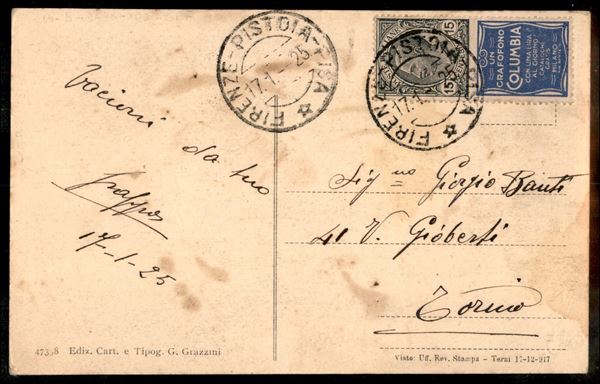 FIRENZE-PISTOIA-PISA
17.1.25
1
15
15
UN
GRAFOFONO
COLUMBIA
CON UNA LIRA
AL GIORNO
CATALOGHI
GRATIS
MILANO
FIRENZE-PISTOIA-PISA
17.1
da tuo
17-1-25
Sig no Giorgio Banti
41 V. Gioberti
Torino
Ediz. Cart. e Tipog. G. Grazzini
Visto: Uff. Rev. Stampa - Terni 17-12-917